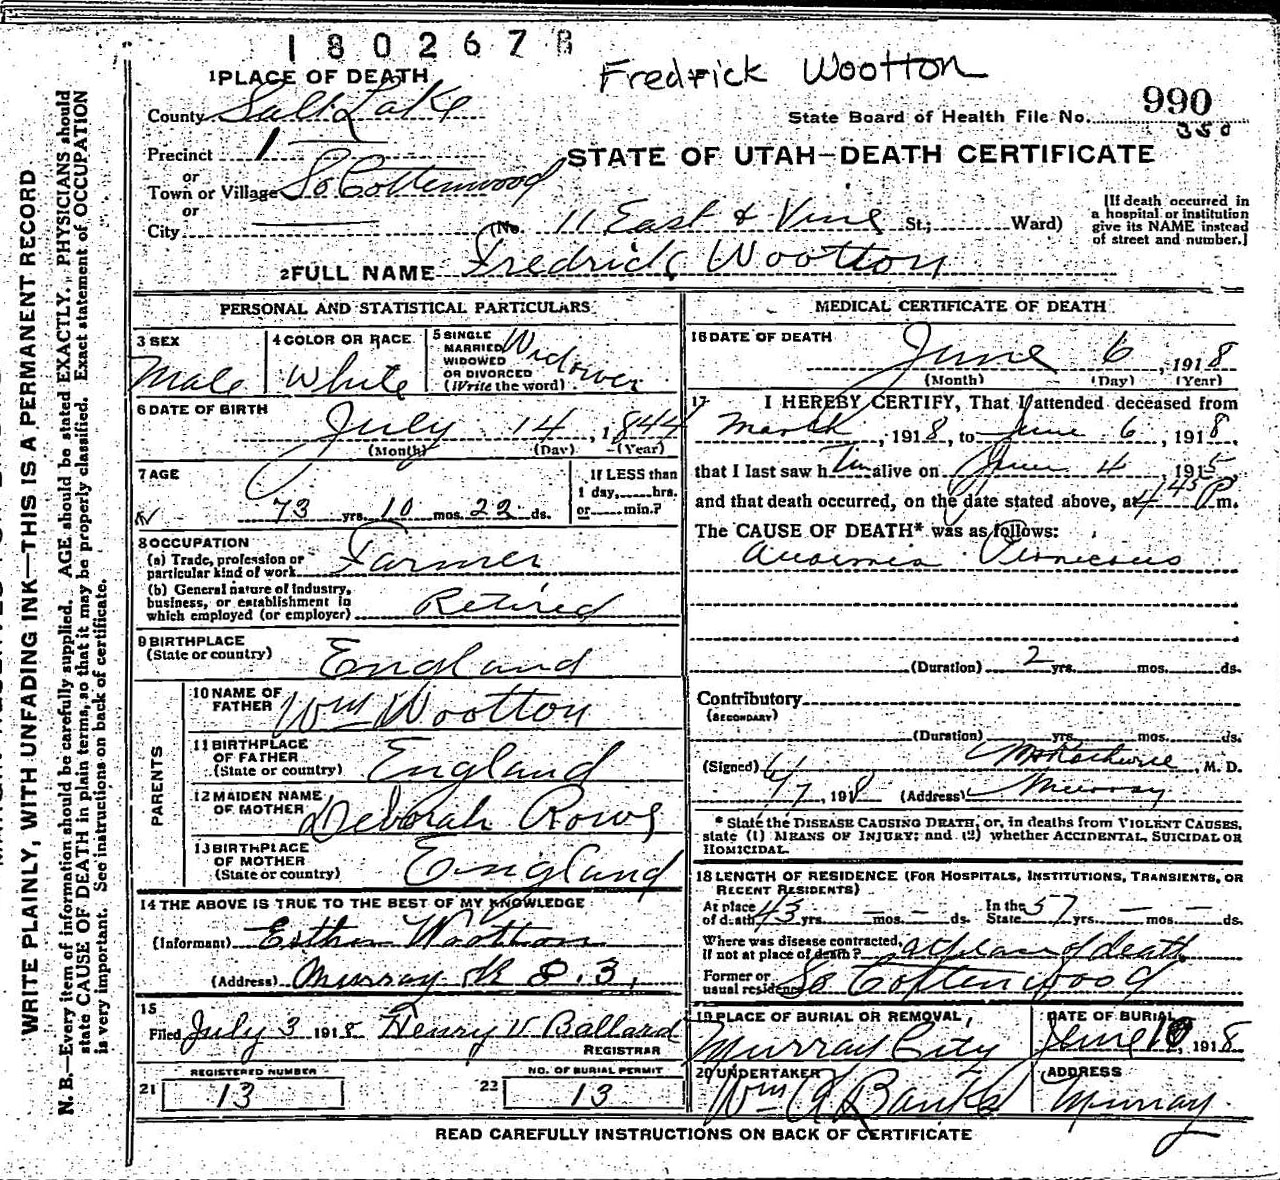 1802678
Fredrick Wootton
1 PLACE OF DEATH
County Salt Lake
State Board of Health File No. 990
350
Precinct 1
or
STATE OF UTAH—DEATH CERTIFICATE
Town or Village So Cottonwood
or
City
(No. 11 East & Vine St.; Ward)
[If death occurred in
a hospital or institution
give its NAME instead
of street and number.]
2 FULL NAME Fredrick Wootton
PERSONAL AND STATISTICAL PARTICULARS
3 SEX
Male
4 COLOR OR RACE
White
5 SINGLE
MARRIED
WIDOWED
OR DIVORCED
(Write the word)
Widower
6 DATE OF BIRTH
July 14, 1844
(Month) (Day) (Year)
7 AGE
73 yrs. 10 mos. 22 ds.
If LESS than
1 day, hrs.
or min.?
8 OCCUPATION
(a) Trade, profession or
particular kind of work Farmer
(b) General nature of industry,
business, or establishment in
which employed (or employer) Retired
9 BIRTHPLACE
(State or country) England
PARENTS
10 NAME OF
FATHER Wm Wootton
11 BIRTHPLACE
OF FATHER
(State or country) England
12 MAIDEN NAME
OF MOTHER Deborah Rows
13 BIRTHPLACE
OF MOTHER
(State or country) England
14 THE ABOVE IS TRUE TO THE BEST OF MY KNOWLEDGE
(Informant) Esther Wootton
(Address) Murray R 3.
15
Filed July 3 1918 Henry V Ballard
REGISTRAR
21 REGISTERED NUMBER
13
22 NO. OF BURIAL PERMIT
13
MEDICAL CERTIFICATE OF DEATH
16 DATE OF DEATH
June 6, 1918
(Month) (Day) (Year)
17 I HEREBY CERTIFY, That I attended deceased from
March, 1918, to June 6, 1918,
that I last saw him alive on June 4 1915,
and that death occurred, on the date stated above, at 4 45 P m.
The CAUSE OF DEATH* was as follows:
Anaemia Pernicious
(Duration) 2 yrs. mos. ds.
Contributory
(SECONDARY)
(Duration) yrs. mos. ds.
(Signed) , M. D.
6/7, 1918 (Address) Murray
* State the DISEASE CAUSING DEATH, or, in deaths from VIOLENT CAUSES,
state (1) MEANS OF INJURY; and (2) whether ACCIDENTAL, SUICIDAL OR
HOMICIDAL.
18 LENGTH OF RESIDENCE (FOR HOSPITALS, INSTITUTIONS, TRANSIENTS, OR
RECENT RESIDENTS)
At place
of death 43 yrs. — mos. — ds.
In the
State 57 yrs. — mos. — ds.
Where was disease contracted,
if not at place of death? at place of death
Former or
usual residence So Cottonwood
19 PLACE OF BURIAL OR REMOVAL
Murray City
DATE OF BURIAL
June 10, 1918
20 UNDERTAKER
Wm A Banks
ADDRESS
Murray.
READ CAREFULLY INSTRUCTIONS ON BACK OF CERTIFICATE
WRITE PLAINLY, WITH UNFADING INK—THIS IS A PERMANENT RECORD
N. B.—Every item of information should be carefully supplied. AGE should be stated EXACTLY. PHYSICIANS should
state CAUSE OF DEATH in plain terms, so that it may be properly classified. Exact statement of OCCUPATION
is very important. See instructions on back of certificate.